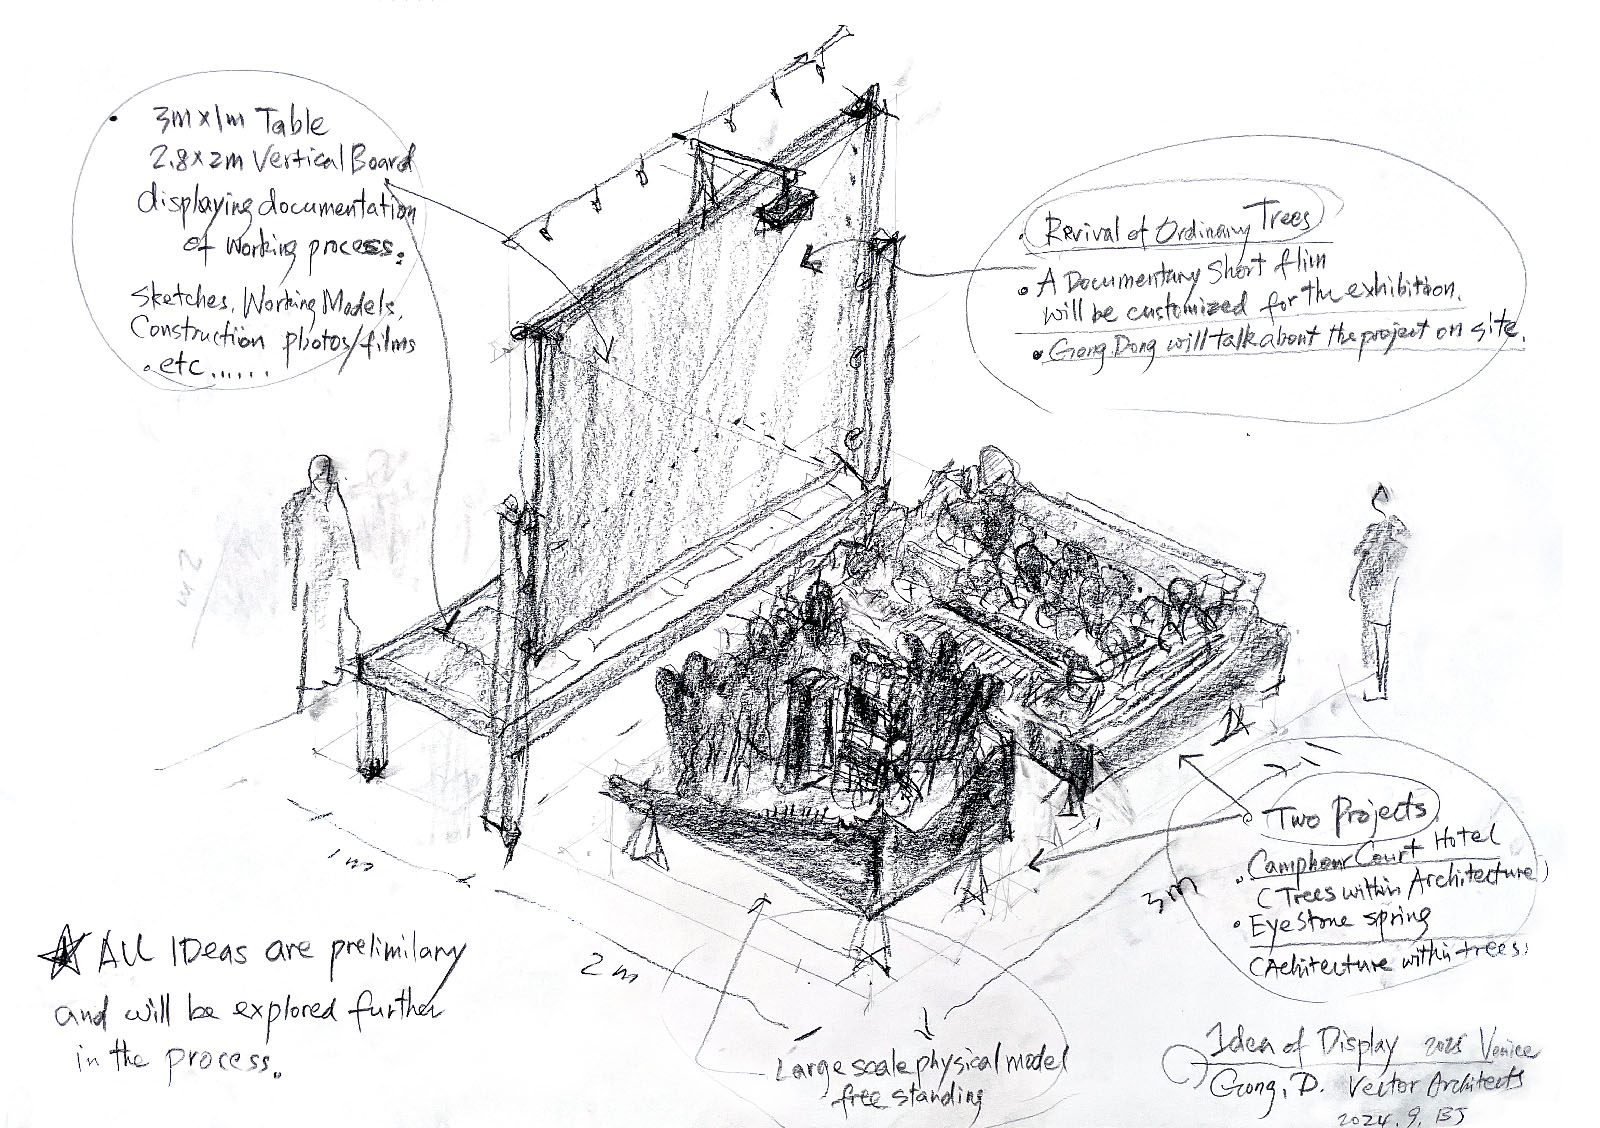 • 3m x 1m Table
2.8 x 2m Vertical Board
displaying documentation
of working process.
Sketches, Working Models,
Construction photos/films
• etc......
• Revival of Ordinary Trees
• A Documentary Short flim
will be customized for the exhibition.
• Gong Dong will talk about the project on site.
2m
1m
2m
3m
Two Projects
• Camphour Court Hotel
(Trees within Architecture)
• Eye Stone spring
(Achitecture within trees)
Large scale physical model
free standing
All IDeas are prelimilary
and will be explored further
in the process.
Idea of Display 2025 Venice
Gong, D. Vector Architects
2024. 9. BJ